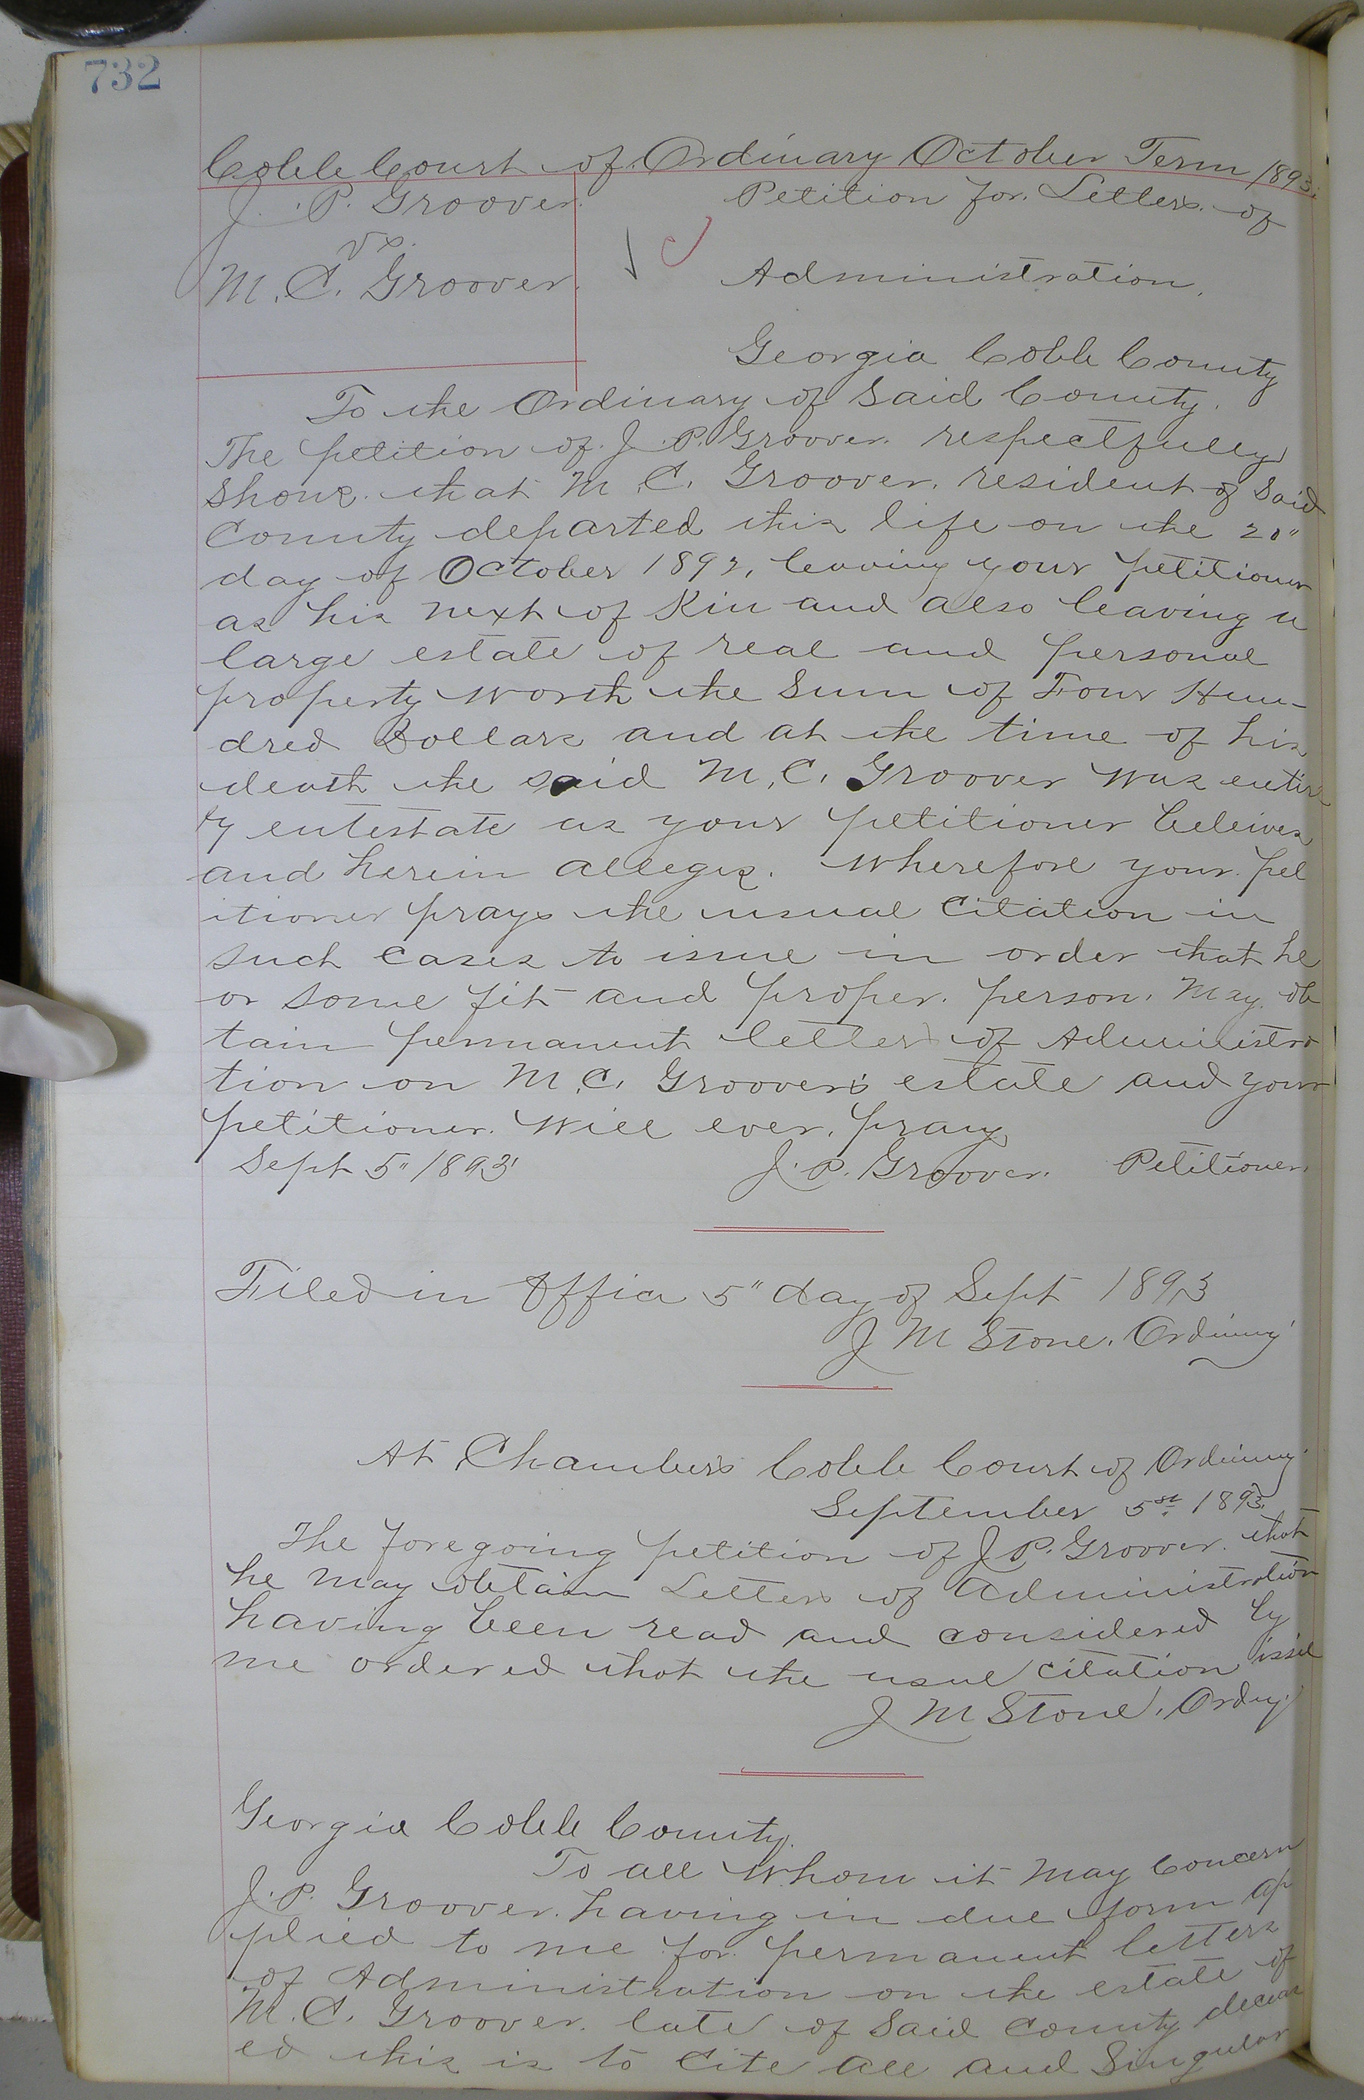 732
Cobb Court of Ordinary October Term 1893.
J. P. Groover
vs.
M. C. Groover
Petition for Letters of
Administration.
Georgia Cobb County
To the Ordinary of Said County.
The petition of J. P. Groover respectfully
shows that M. C. Groover, resident of Said
County departed this life on the 20"
day of October 1892, leaving your petitioner
as his next of Kin and also leaving a
large estate of real and personal
property worth the Sum of Four Hun-
dred Dollars and at the time of his
death the said M. C. Groover was entire
ly entestate as your petitioner beleives
and herein alleges. Wherefore your pet
itioner prays the usual Citation in
such cases to issue in order that he
or some fit and proper person, May ob
tain permanent letters of Administra
tion on M. C. Groover's estate and your
petitioner Will ever pray
Sept 5" 1893 J. P. Groover. Petitioner.
Filed in Office 5" day of Sept 1893
J M Stone, Ordinary
At Chambers Cobb Court of Ordinary
September 5st 1893.
The foregoing petition of J. P. Groover that
he may obtain Letters of Administration
having been read and considered by
me ordered that the usual citation issue
J M Stone, Ordny.
Georgia Cobb County
To all Whom it May Concern
J. P. Groover having in due form Ap
plied to me for permanent letters
of Administration on the estate of
M. C. Groover late of Said County deceas
ed this is to Cite All and Singular